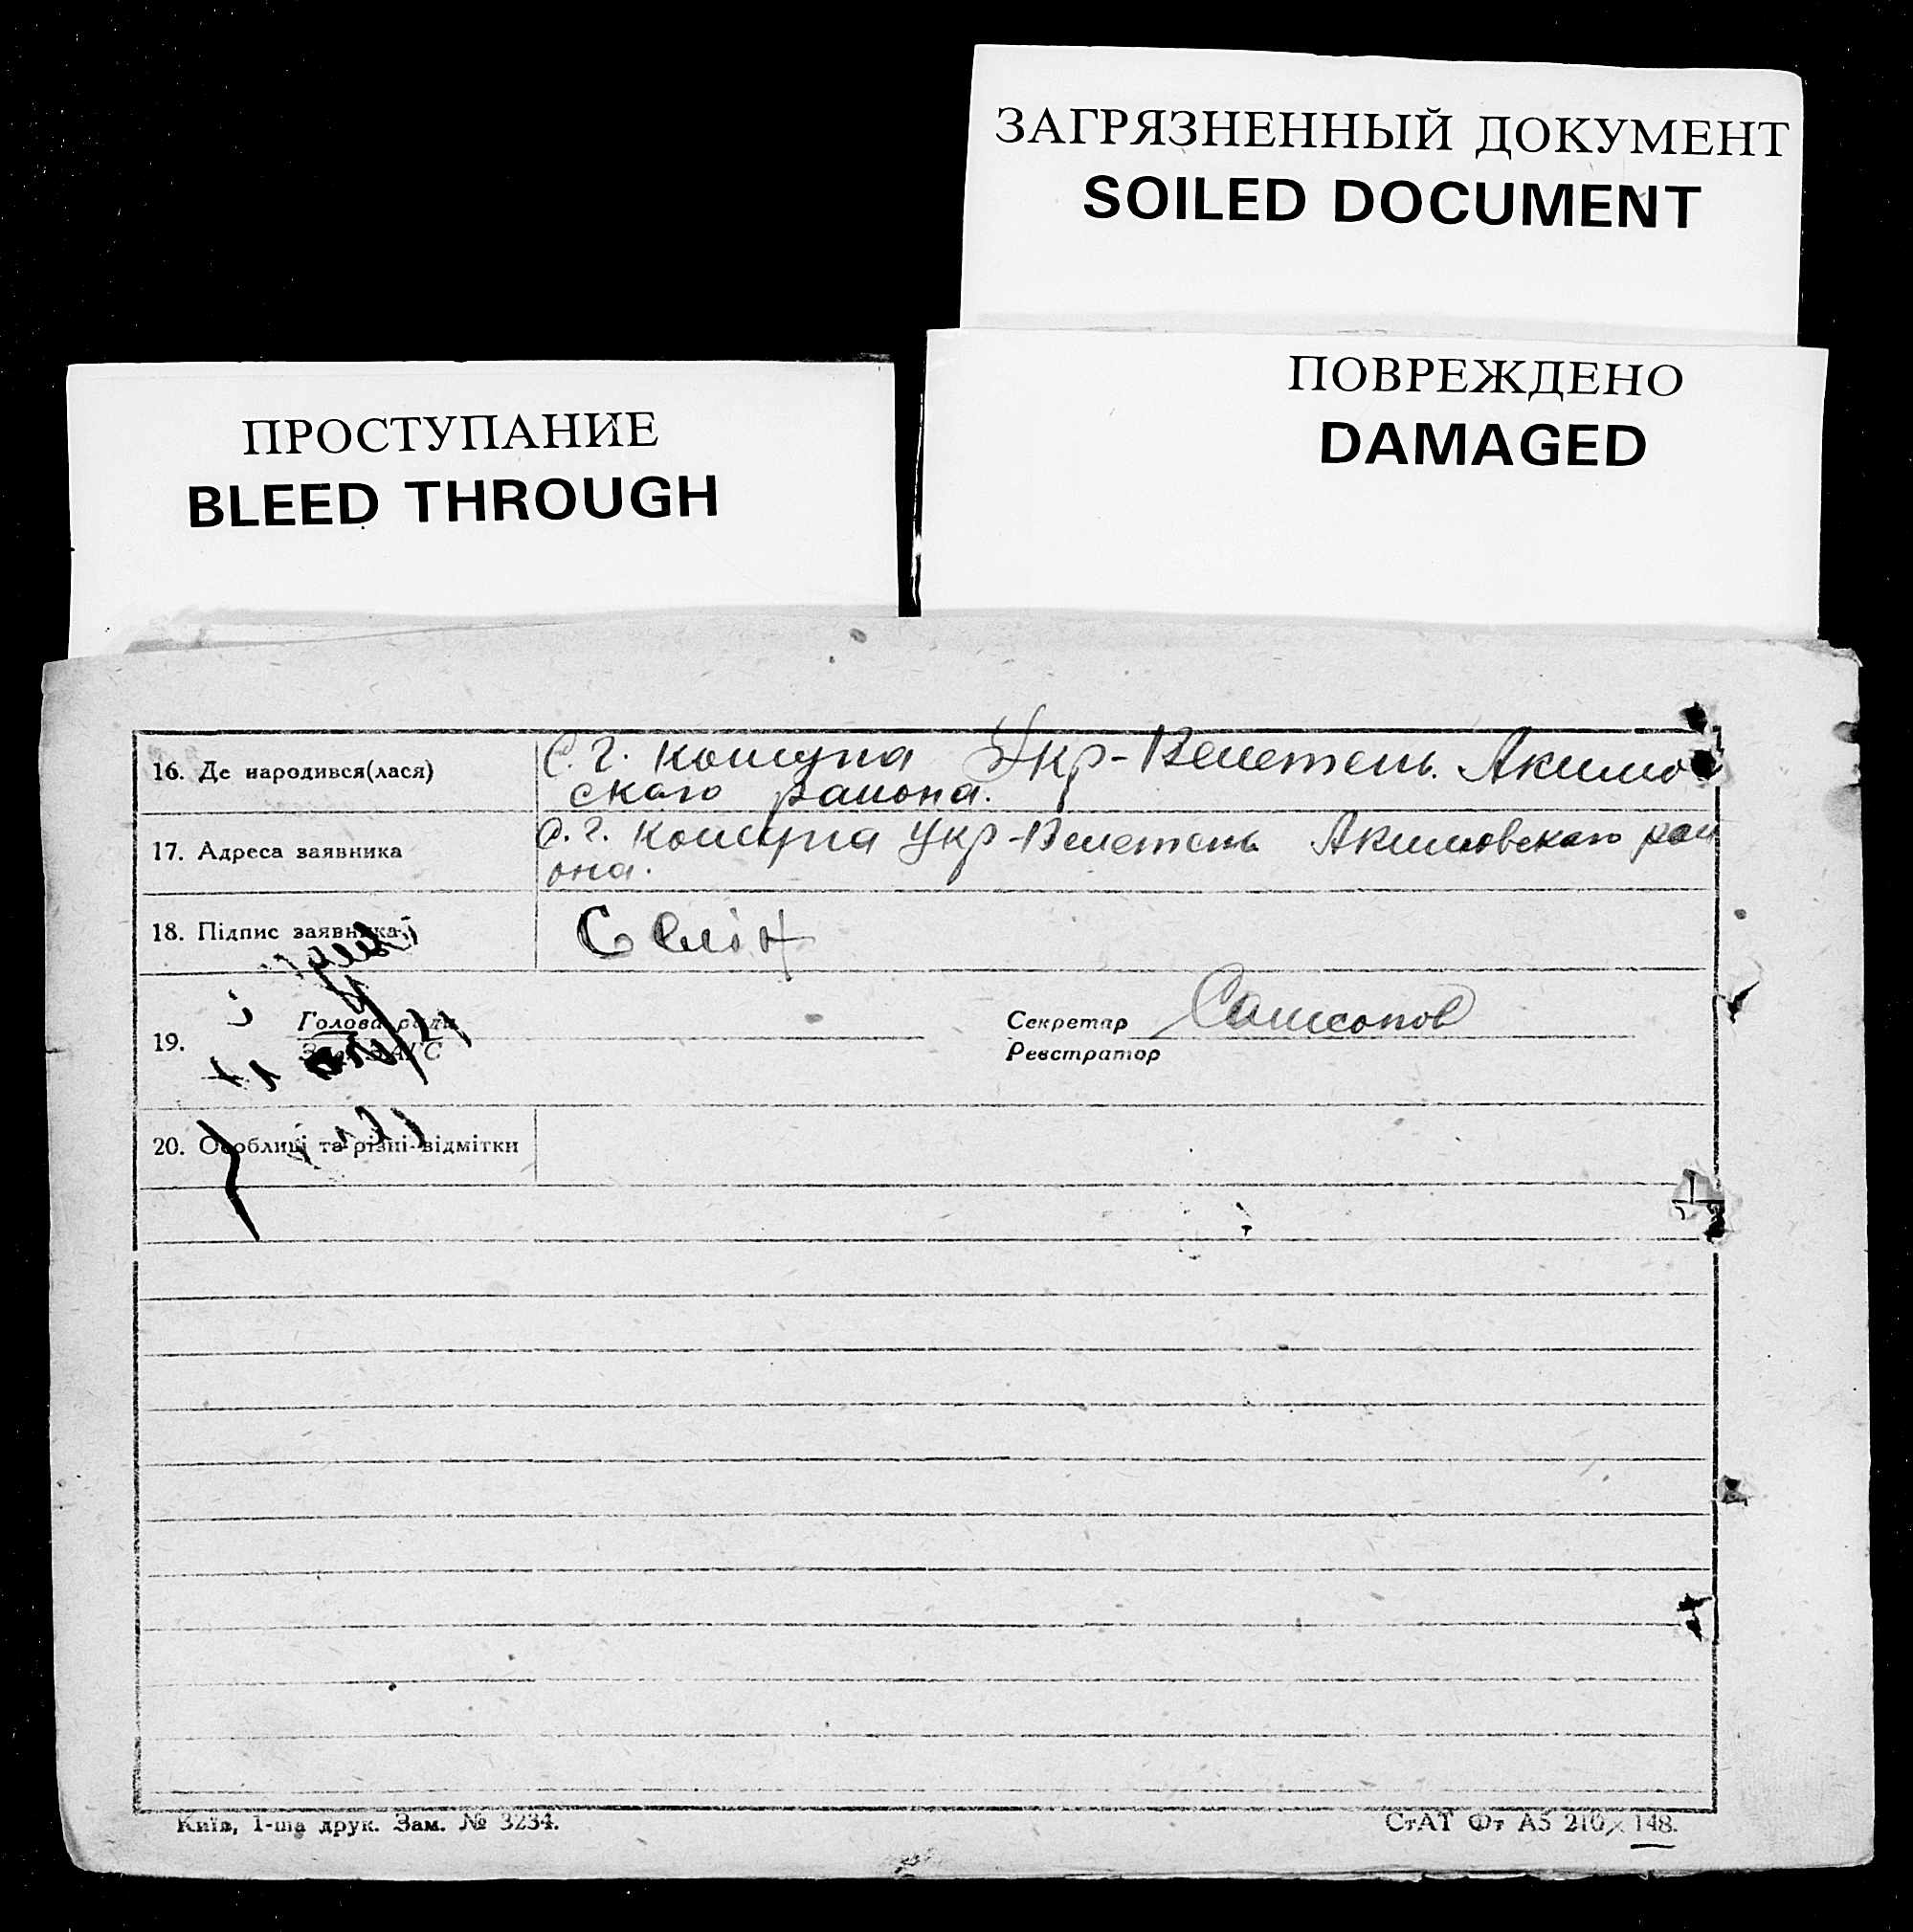 ЗАГРЯЗНЕННЫЙ ДОКУМЕНТ
SOILED DOCUMENT
ПОВРЕЖДЕНО
DAMAGED
ПРОСТУПАНИЕ
BLEED THROUGH
16. Де народився(лася)
С. Г. комуна Укр-Велетень. Акимо
ского района.
17. Адреса заявника
С. Г. комуна Укр-Велетень Акимовского рай
она.
18. Підпис заявника
19.
Голова ради
Зав. ЗАГС
Секретар
Реєстратор
20. Особливі та різні відмітки
Київ, 1-ша друк. Зам. № 3234.
СтАТ Фт А5 210×148.